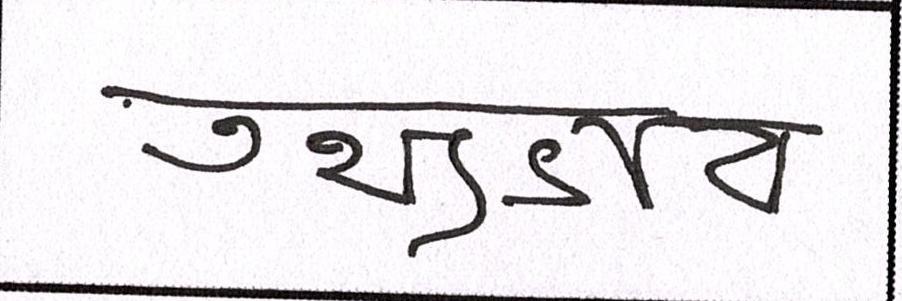 তথ্যভাব